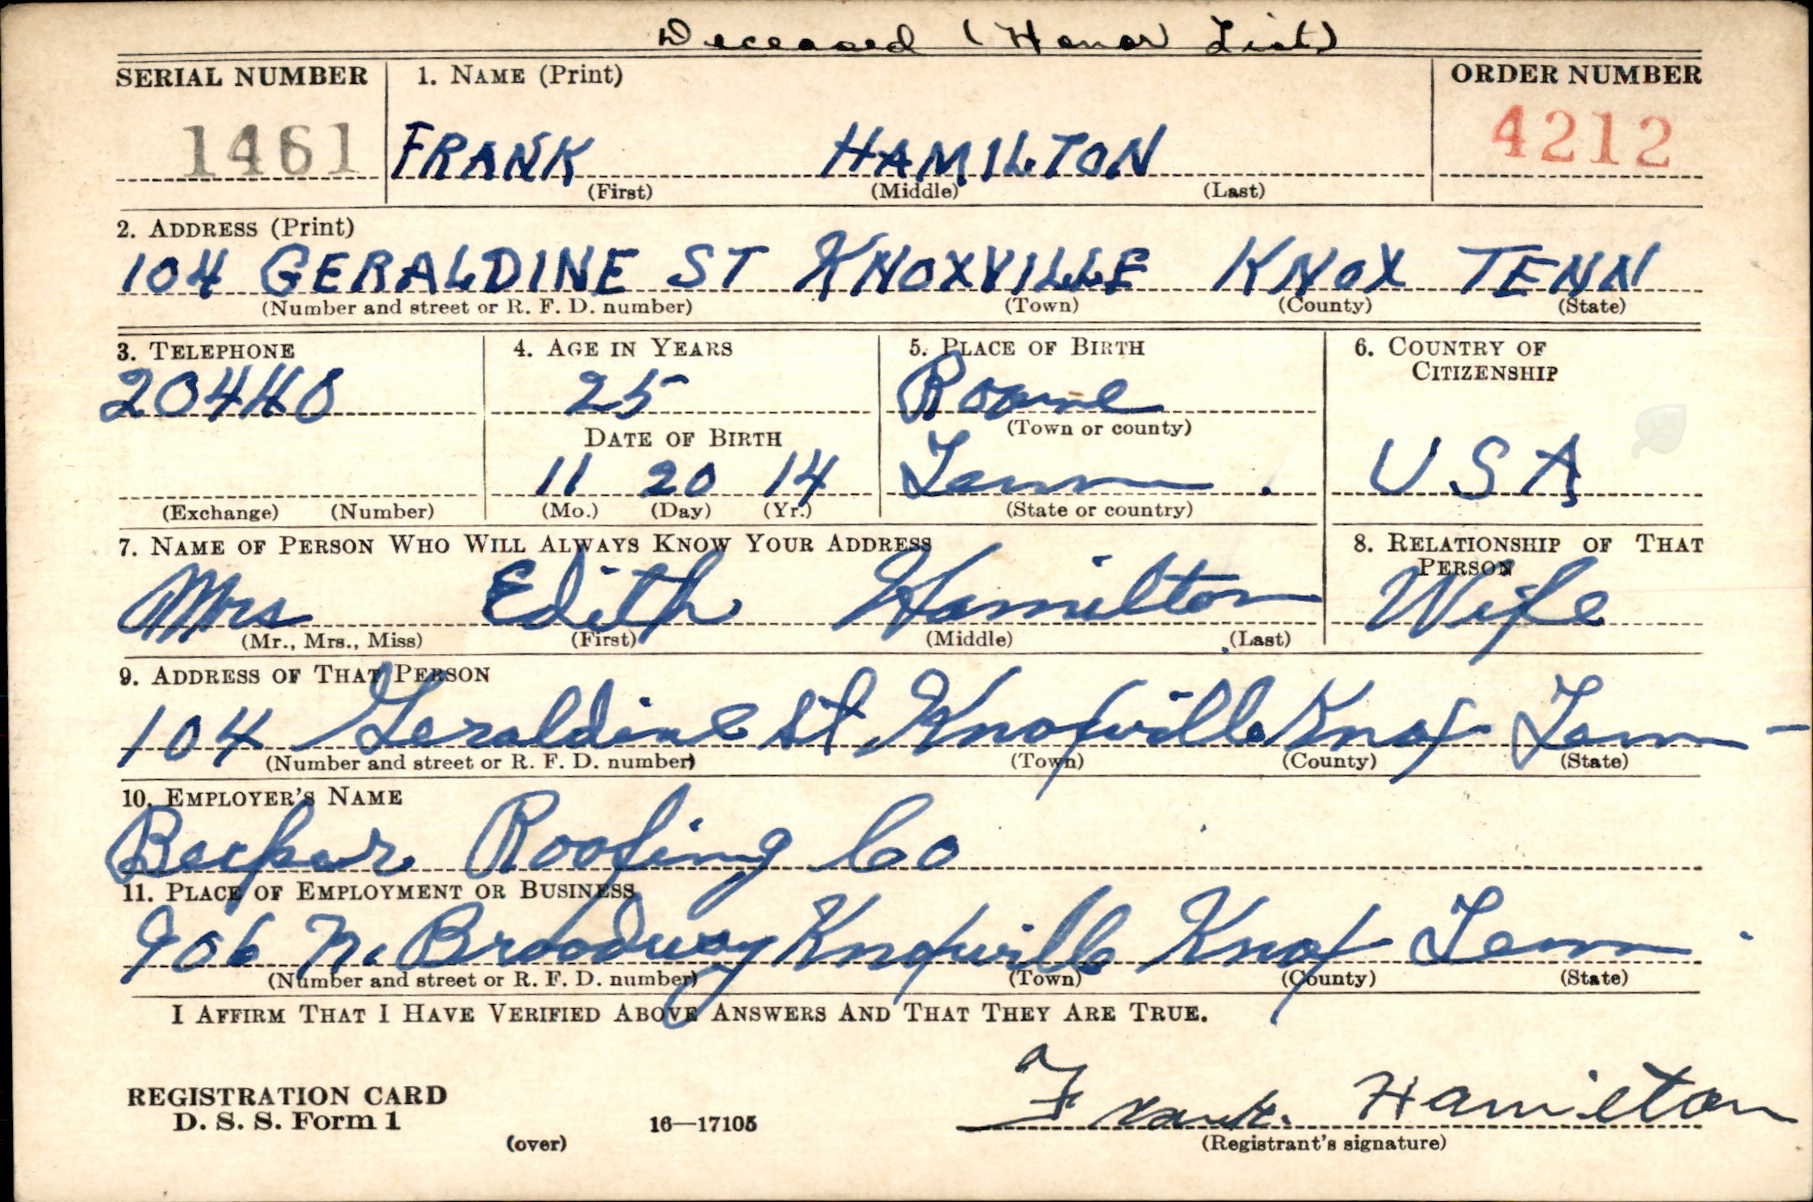 Deceased (Honor List)
SERIAL NUMBER 1. NAME (Print) ORDER NUMBER
1461 FRANK HAMILTON 4212
(First) (Middle) (Last)
2. ADDRESS (Print)
104 GERALDINE ST KNOXVILLE KNOX TENN
(Number and street or R. F. D. number) (Town) (County) (State)
3. TELEPHONE 4. AGE IN YEARS 5. PLACE OF BIRTH 6. COUNTRY OF CITIZENSHIP
20440 25 Roane
DATE OF BIRTH (Town or county)
11 20 14 Tenn. USA
(Exchange) (Number) (Mo.) (Day) (Yr.) (State or country)
7. NAME OF PERSON WHO WILL ALWAYS KNOW YOUR ADDRESS 8. RELATIONSHIP OF THAT PERSON
Mrs Edith Hamilton Wife
(Mr., Mrs., Miss) (First) (Middle) (Last)
9. ADDRESS OF THAT PERSON
104 Geraldine St Knoxville Knox Tenn
(Number and street or R. F. D. number) (Town) (County) (State)
10. EMPLOYER'S NAME
Roofing Co
11. PLACE OF EMPLOYMENT OR BUSINESS
906 N. Broadway Knoxville Knox Tenn.
(Number and street or R. F. D. number) (Town) (County) (State)
I AFFIRM THAT I HAVE VERIFIED ABOVE ANSWERS AND THAT THEY ARE TRUE.
Frank Hamilton
REGISTRATION CARD
D. S. S. Form 1 (over) 16—17105 (Registrant's signature)